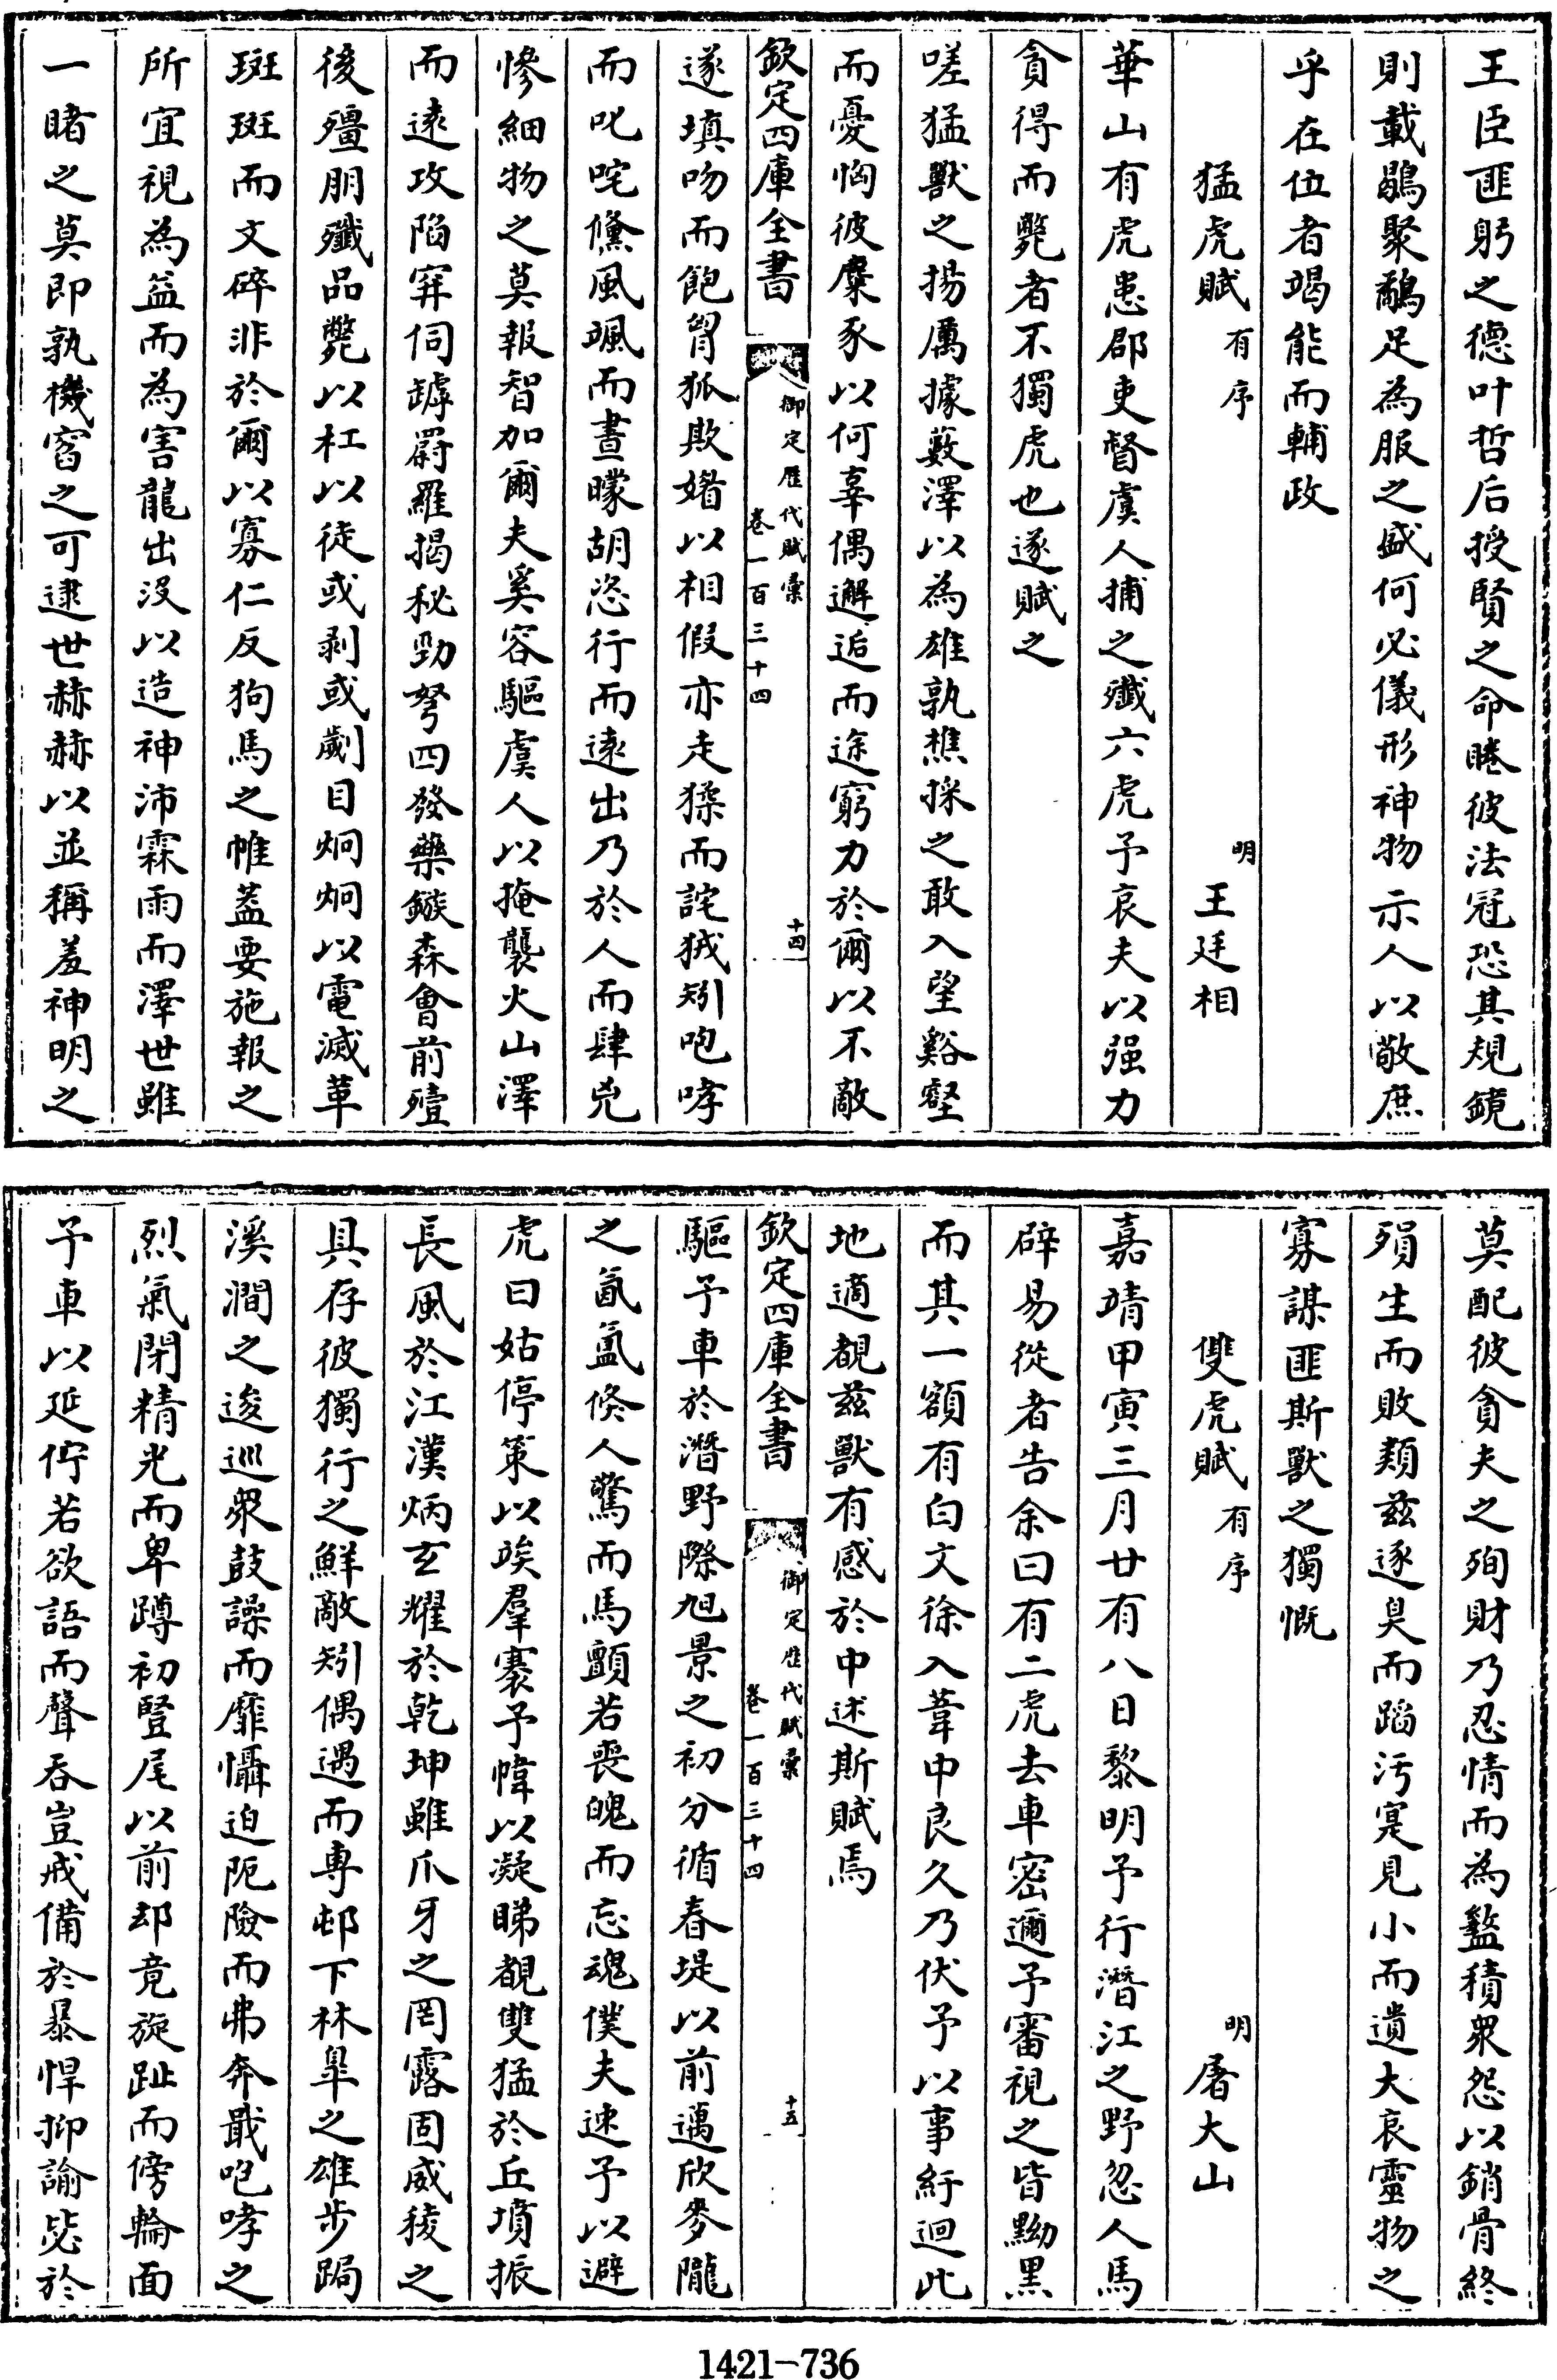 王臣匪躬之德叶哲后授賢之命睠彼法冠恐其規鏡
則載鶡聚鷸足為服之盛何必儀形神物示人以敬庶
乎在位者竭能而輔政
猛虎賦有序 明王廷相
華山有虎患郡吏督虞人捕之殲六虎予哀夫以强力
貪得而斃者不獨虎也遂賦之
嗟猛獸之揚厲據藪澤以為雄孰樵採之敢入望谿壑
而憂恫彼麋豕以何辜偶邂逅而途窮力於爾以不敵
欽定四庫全書 御定歷代賦彙 卷一百三十四 十四
遂填吻而飽胃狐欺媎以相假亦走猱而詫狨矧咆哮
而叱咤儵風颯而晝曚胡恣行而遠出乃於人而肆兇
慘細物之莫報智加爾夫奚容驅虞人以掩襲火山澤
而遠攻陷穽伺罅罻羅揭秘勁弩四發藥鏃森會前殪
後殭朋殲品斃以杠以徒或剥或劌目炯炯以電滅革
斑斑而文碎非於爾以寡仁反狗馬之帷蓋要施報之
所宜視為益而為害龍出沒以造神沛霖雨而澤世雖
一睹之莫即孰機䆫之可逮世赫赫以並稱羞神明之
莫配彼貪夫之殉財乃忍情而為盭積衆怨以銷骨終
殞生而敗類兹逐臭而蹈汚寔見小而遺大哀靈物之
寡謀匪斯獸之獨慨
雙虎賦有序 明屠大山
嘉靖甲寅三月廿有八日黎明予行潛江之野忽人馬
辟易從者告余曰有二虎去車密邇予審視之皆黝黑
而其一額有白文徐入葦中良久乃伏予以事紆迴此
地適覩兹獸有感於中述斯賦焉
欽定四庫全書 御定歷代賦彙 卷一百三十四 十五
驅予車於潛野際旭景之初分循春堤以前邁欣麥隴
之氤氳倏人驚而馬顫若喪魄而忘魂僕夫速予以避
虎曰姑停策以竢羣褰予幃以凝睇覩雙猛於丘墳振
長風於江漢炳玄耀於乾坤雖爪牙之罔露固威稜之
具存彼獨行之鮮敵矧偶遇而專邨下林臯之雄步跼
溪澗之逡巡衆鼓譟而靡懾迫阨險而弗奔戢咆哮之
烈氣閉精光而卑蹲初豎尾以前却竟旋趾而傍輪面
予車以延佇若欲語而聲吞豈戒備於暴悍抑諭毖於
1421-736